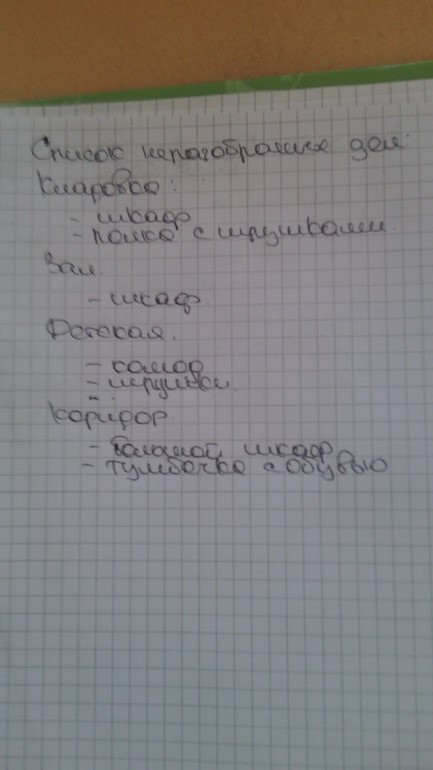 Список неразобранных дел:
Кладовка:
- шкаф
- полка с игрушками.
Зал.
- шкаф
Детская.
- комод
- игрушки.
Коридор
- большой шкаф
- тумбочка с обувью